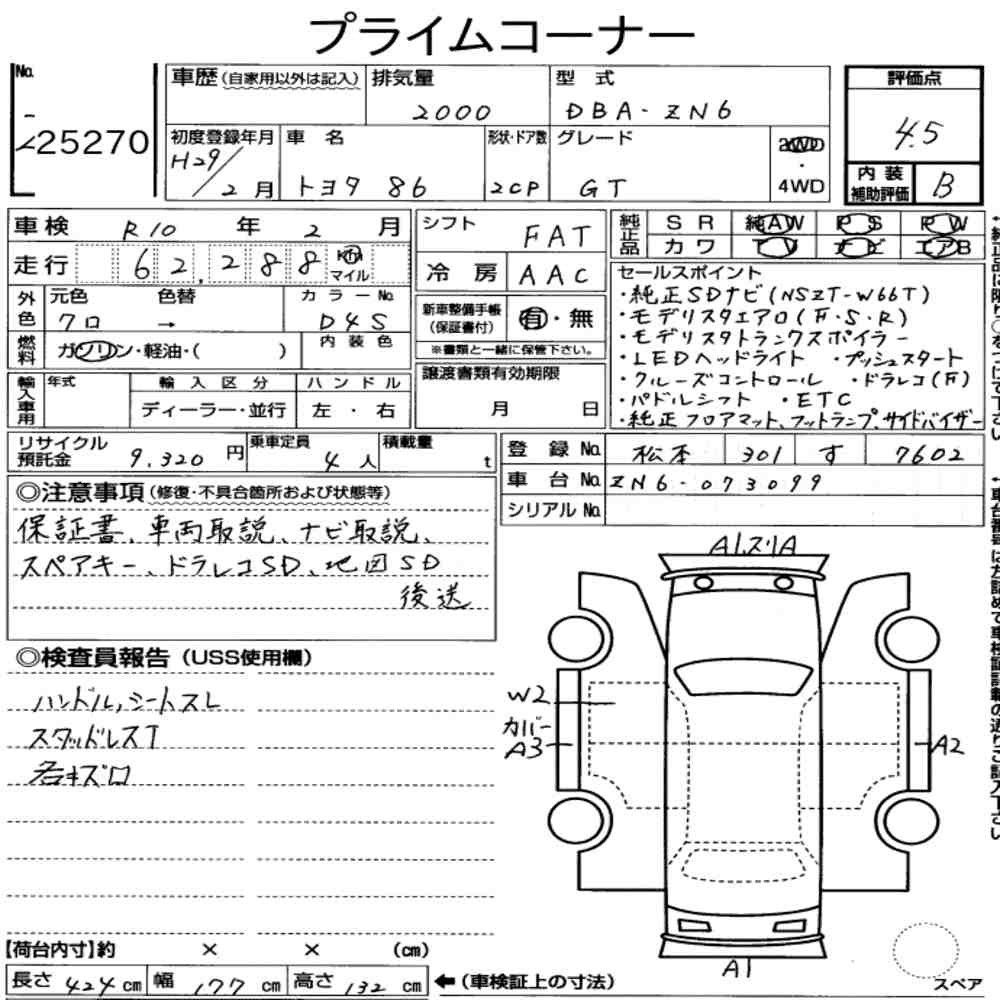 プライムコーナー
No.
25270
車歴(自家用以外は記入)
排気量
2000
型式
DBA-ZN6
初度登録年月
H29/2月
車名
トヨタ 86
形状・ドア数
2CP
グレード
GT
2WD
・
4WD
評価点
4.5
内装
補助評価
B
車検 R10年 2月
走行 62,288 Km マイル
外色
元色
クロ
色替
→
カラーNo.
D4S
燃料
ガソリン・軽油・( )
内装色
輸入車用
年式
輸入区分
ディーラー・並行
ハンドル
左・右
シフト
FAT
冷房
AAC
新車整備手帳
(保証書付)
有・無
※書類と一緒に保管下さい。
譲渡書類有効期限
月 日
純正品
SR 純AW PS PW
カワ TV ナビ エアB
セールスポイント
・純正SDナビ(NSZT-W66T)
・モデリスタエアロ(F・S・R)
・モデリスタトランクスポイラー
・LEDヘッドライト ・プッシュスタート
・クルーズコントロール ・ドラレコ(F)
・パドルシフト ・ETC
・純正フロアマット、フットランプ、サイドバイザー
リサイクル
預託金
9,320円
乗車定員
4人
積載量
t
登録No. 松本 301 す 7602
車台No. ZN6-073099
シリアルNo.
◎注意事項(修復・不具合箇所および状態等)
保証書、車両取説、ナビ取説、
スペアキー、ドラレコSD、地図SD
後送
◎検査員報告(USS使用欄)
ハンドル,シートスレ
スタッドレスT
若キズロ
A1.スリA
W2
カバー
A3
A2
A1
スペア
【荷台内寸】約 × × (cm)
長さ 424 cm 幅 177 cm 高さ 132 cm ←(車検証上の寸法)